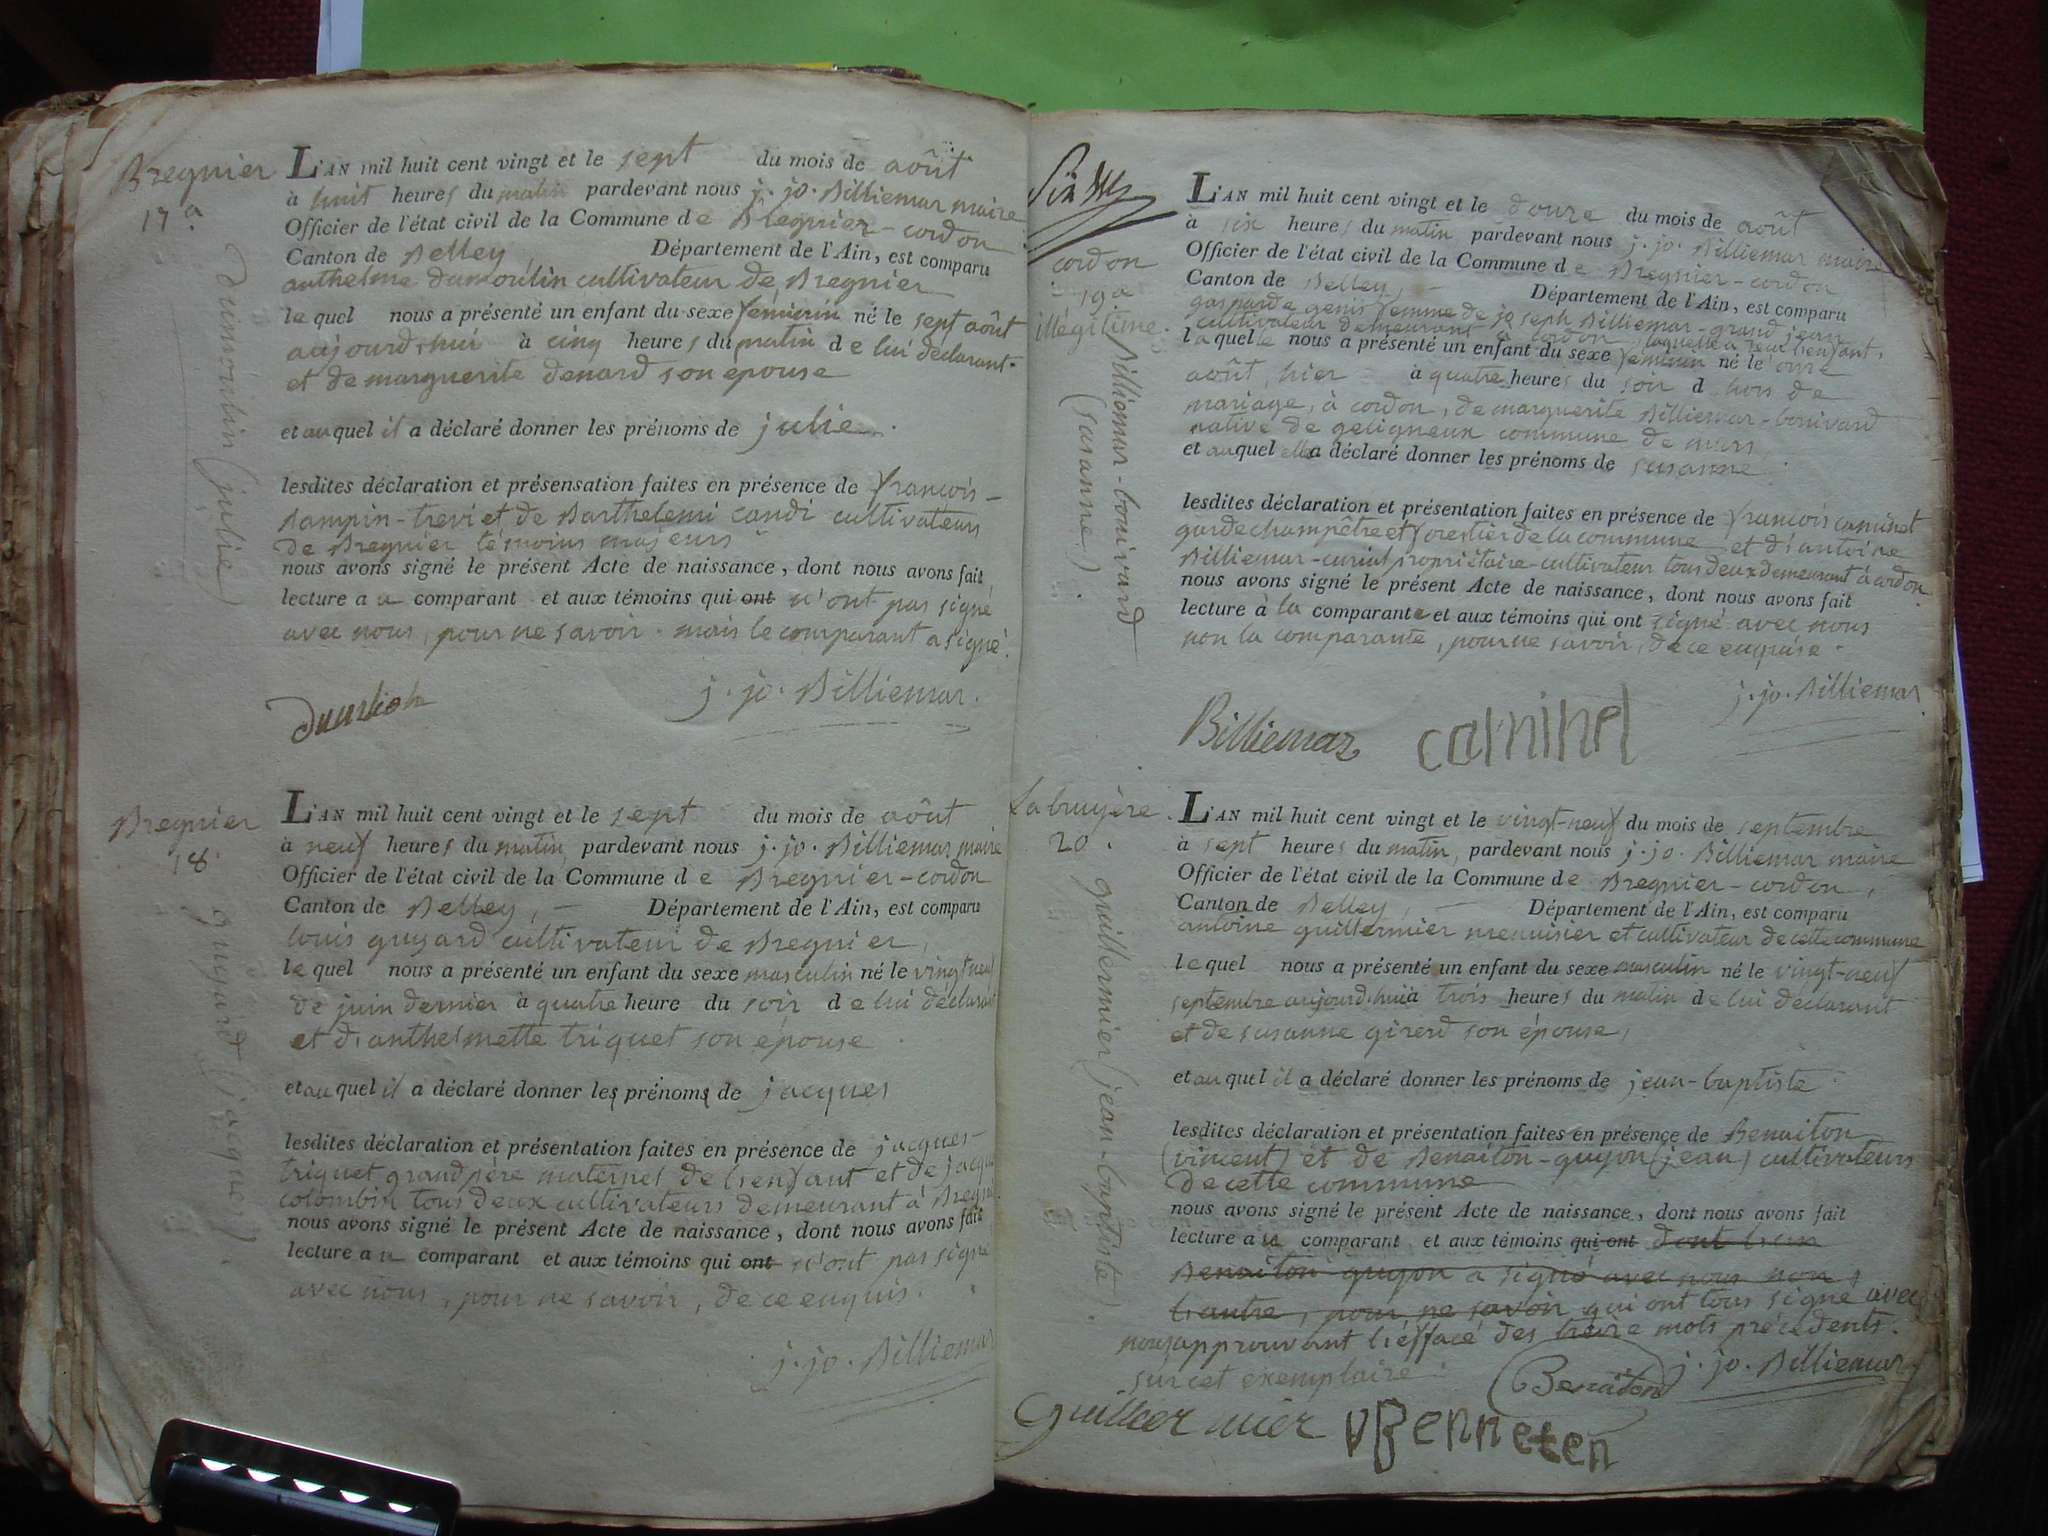 Bregnier
17.e
dumoulin (julie)
L'AN mil huit cent vingt et le sept du mois de août
à huit heures du matin pardevant nous j. jo. Billiemaz maire
Officier de l'état civil de la Commune de Bregnier-cordon
Canton de Belley, Département de l'Ain, est comparu
anthelme dumoulin cultivateur de Bregnier
lequel nous a présenté un enfant du sexe féminin né le sept août
aujourd'hui à cinq heures du matin de lui déclarant
et de marguerite denard son épouse
et auquel il a déclaré donner les prénoms de julie.
lesdites déclaration et présensation faites en présence de françois-
et de Barthelemi candi cultivateurs
de Bregnier témoins majeurs
nous avons signé le présent Acte de naissance, dont nous avons fait
lecture au comparant et aux témoins qui ont n'ont pas signé
avec nous, pour ne savoir. mais le comparant a signé.
j. jo. Billiemaz.
Bregnier
18
guyard (jacques).
L'AN mil huit cent vingt et le sept du mois de août
à neuf heures du matin, pardevant nous j. jo. Billiemaz maire
Officier de l'état civil de la Commune de Bregnier-cordon
Canton de Belley, - Département de l'Ain, est comparu
louis guyard cultivateur de Bregnier,
lequel nous a présenté un enfant du sexe masculin né le vingt neuf
de juin dernier à quatre heure du soir de lui déclarant
et d'anthelmette triquet son épouse.
et auquel il a déclaré donner les prénoms de jacques
lesdites déclaration et présentation faites en présence de jacques-
triquet grand père maternel de l'enfant et de jacques
colombin tous deux cultivateurs demeurant à Bregnier
nous avons signé le présent Acte de naissance, dont nous avons fait
lecture au comparant et aux témoins qui ont n'ont pas signé
avec nous, pour ne savoir, de ce enquis.
j. jo. Billiemaz
cordon
19e
illégitime.
Billiemaz-bonivard
(susanne).
L'AN mil huit cent vingt et le douze du mois de août
à six heures du matin pardevant nous j. jo. Billiemaz maire
Officier de l'état civil de la Commune de Bregnier-cordon
Canton de Belley, - Département de l'Ain, est comparu
gasparde genis femme de joseph Billiemaz-grand jean
cultivateur demeurant à cordon, laquelle a reçu l'enfant,
laquelle nous a présenté un enfant du sexe féminin né le onze
août, hier à quatre heures du soir d hors de
mariage, à cordon, de marguerite Billiemaz-bonivard
native de geligneux commune de murs
et auquel elle a déclaré donner les prénoms de susanne.
lesdites déclaration et présentation faites en présence de françois caminet
garde champêtre et forestier de la commune et d'antoine
Billiemaz-curial propriétaire-cultivateur tous deux demeurant à cordon.
nous avons signé le présent Acte de naissance, dont nous avons fait
lecture à la comparante et aux témoins qui ont signé avec nous
non la comparante, pour ne savoir, de ce enquise.
j. jo. Billiemaz
Billiemaz caminet
Labruyère.
20.
guillermier (jean-baptiste)
L'AN mil huit cent vingt et le vingt-neuf du mois de septembre
à sept heures du matin, pardevant nous j. jo. Billiemaz maire
Officier de l'état civil de la Commune de Bregnier-cordon,
Canton de Belley, - Département de l'Ain, est comparu
antoine guillermier menuisier et cultivateur de cette commune
lequel nous a présenté un enfant du sexe masculin né le vingt-neuf
septembre aujourd'hui à trois heures du matin de lui déclarant
et de susanne girerd son épouse,
et auquel il a déclaré donner les prénoms de jean-baptiste.
lesdites déclaration et présentation faites en présence de Benaiton
(vincent) et de Benaiton-guyon (jean) cultivateurs
de cette commune
nous avons signé le présent Acte de naissance, dont nous avons fait
lecture au comparant et aux témoins qui ont dont l'un
Benaiton guyon a signé avec nous non
l'autre, pour ne savoir qui ont tous signé avec
nous approuvant l'effacé des treize mots précédents.
sur cet exemplaire.
Benaiton j. jo. Billiemaz
Guillermier vBenneten